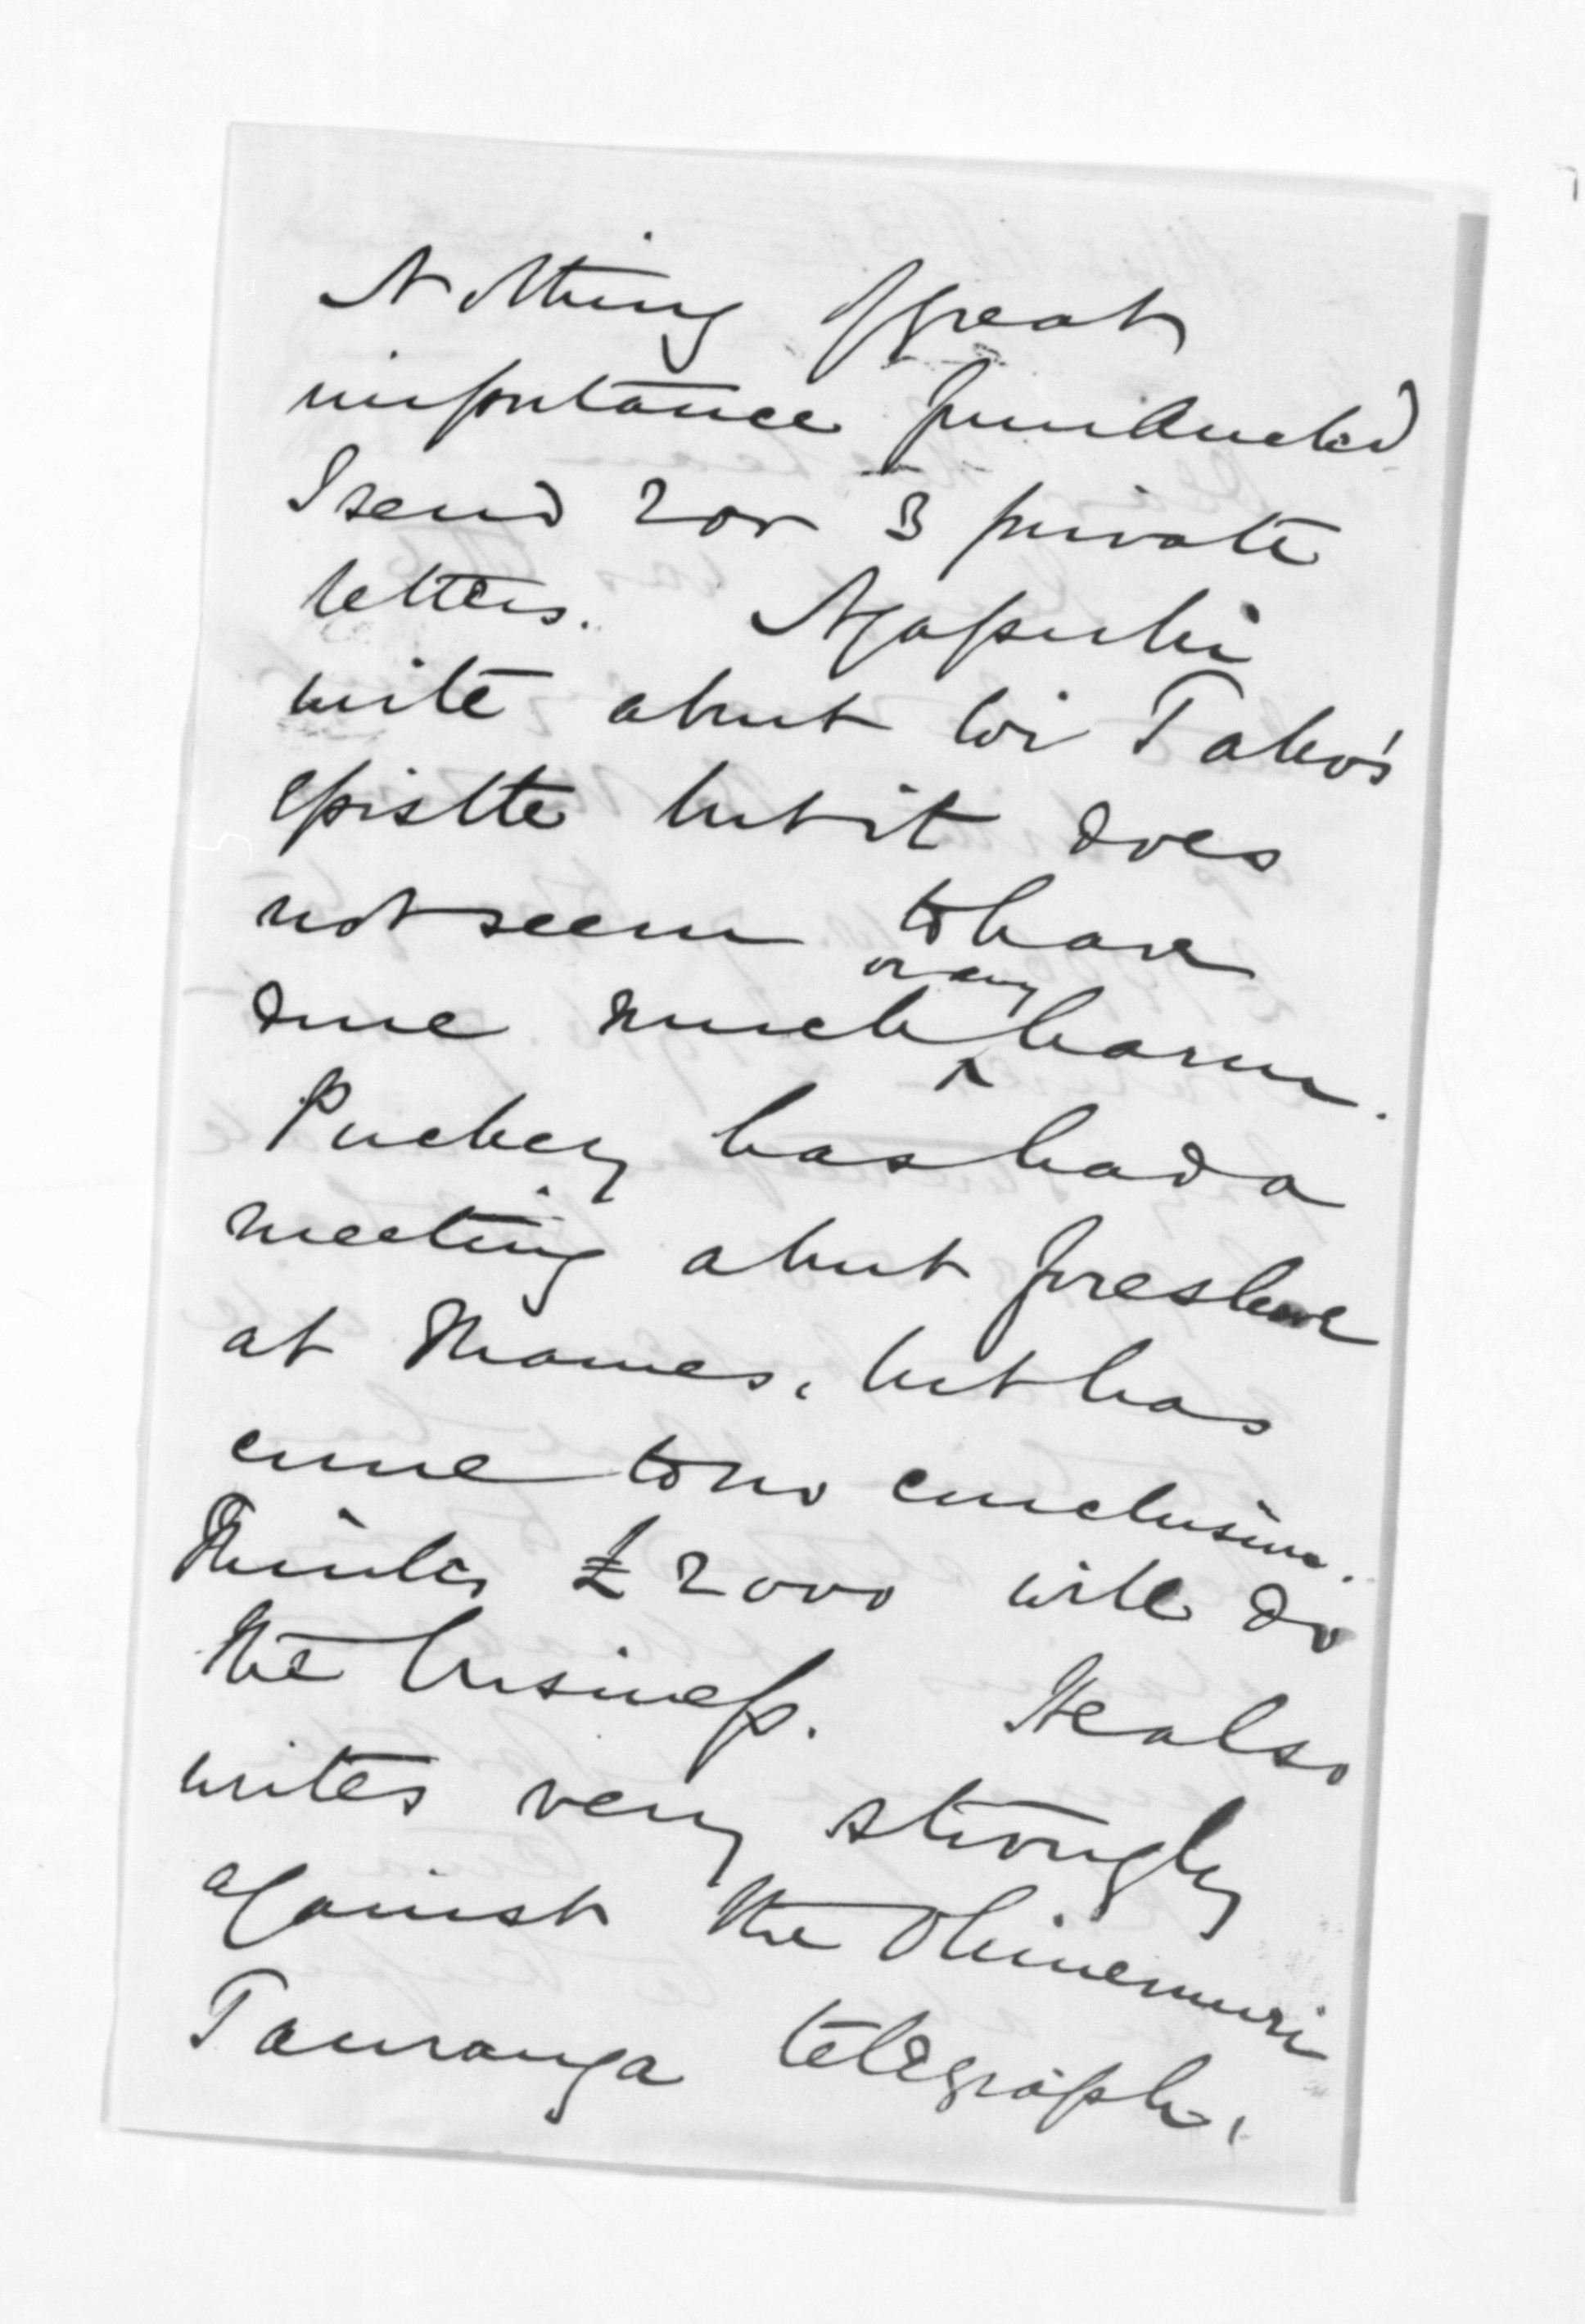 Nothing of great
importance
I send 2 or 3 private
letters. Ngapuhi
write about Wi Tako's
epistle but it does
not seem to have
done much or any harm.
Puckey has had a
meeting about foreshore
at Thames, but has
come to no conclusion.
Thinks £2000 will do
the business. He also
writes very strongly
against the Ohinemuri
Tauranga telegraph.